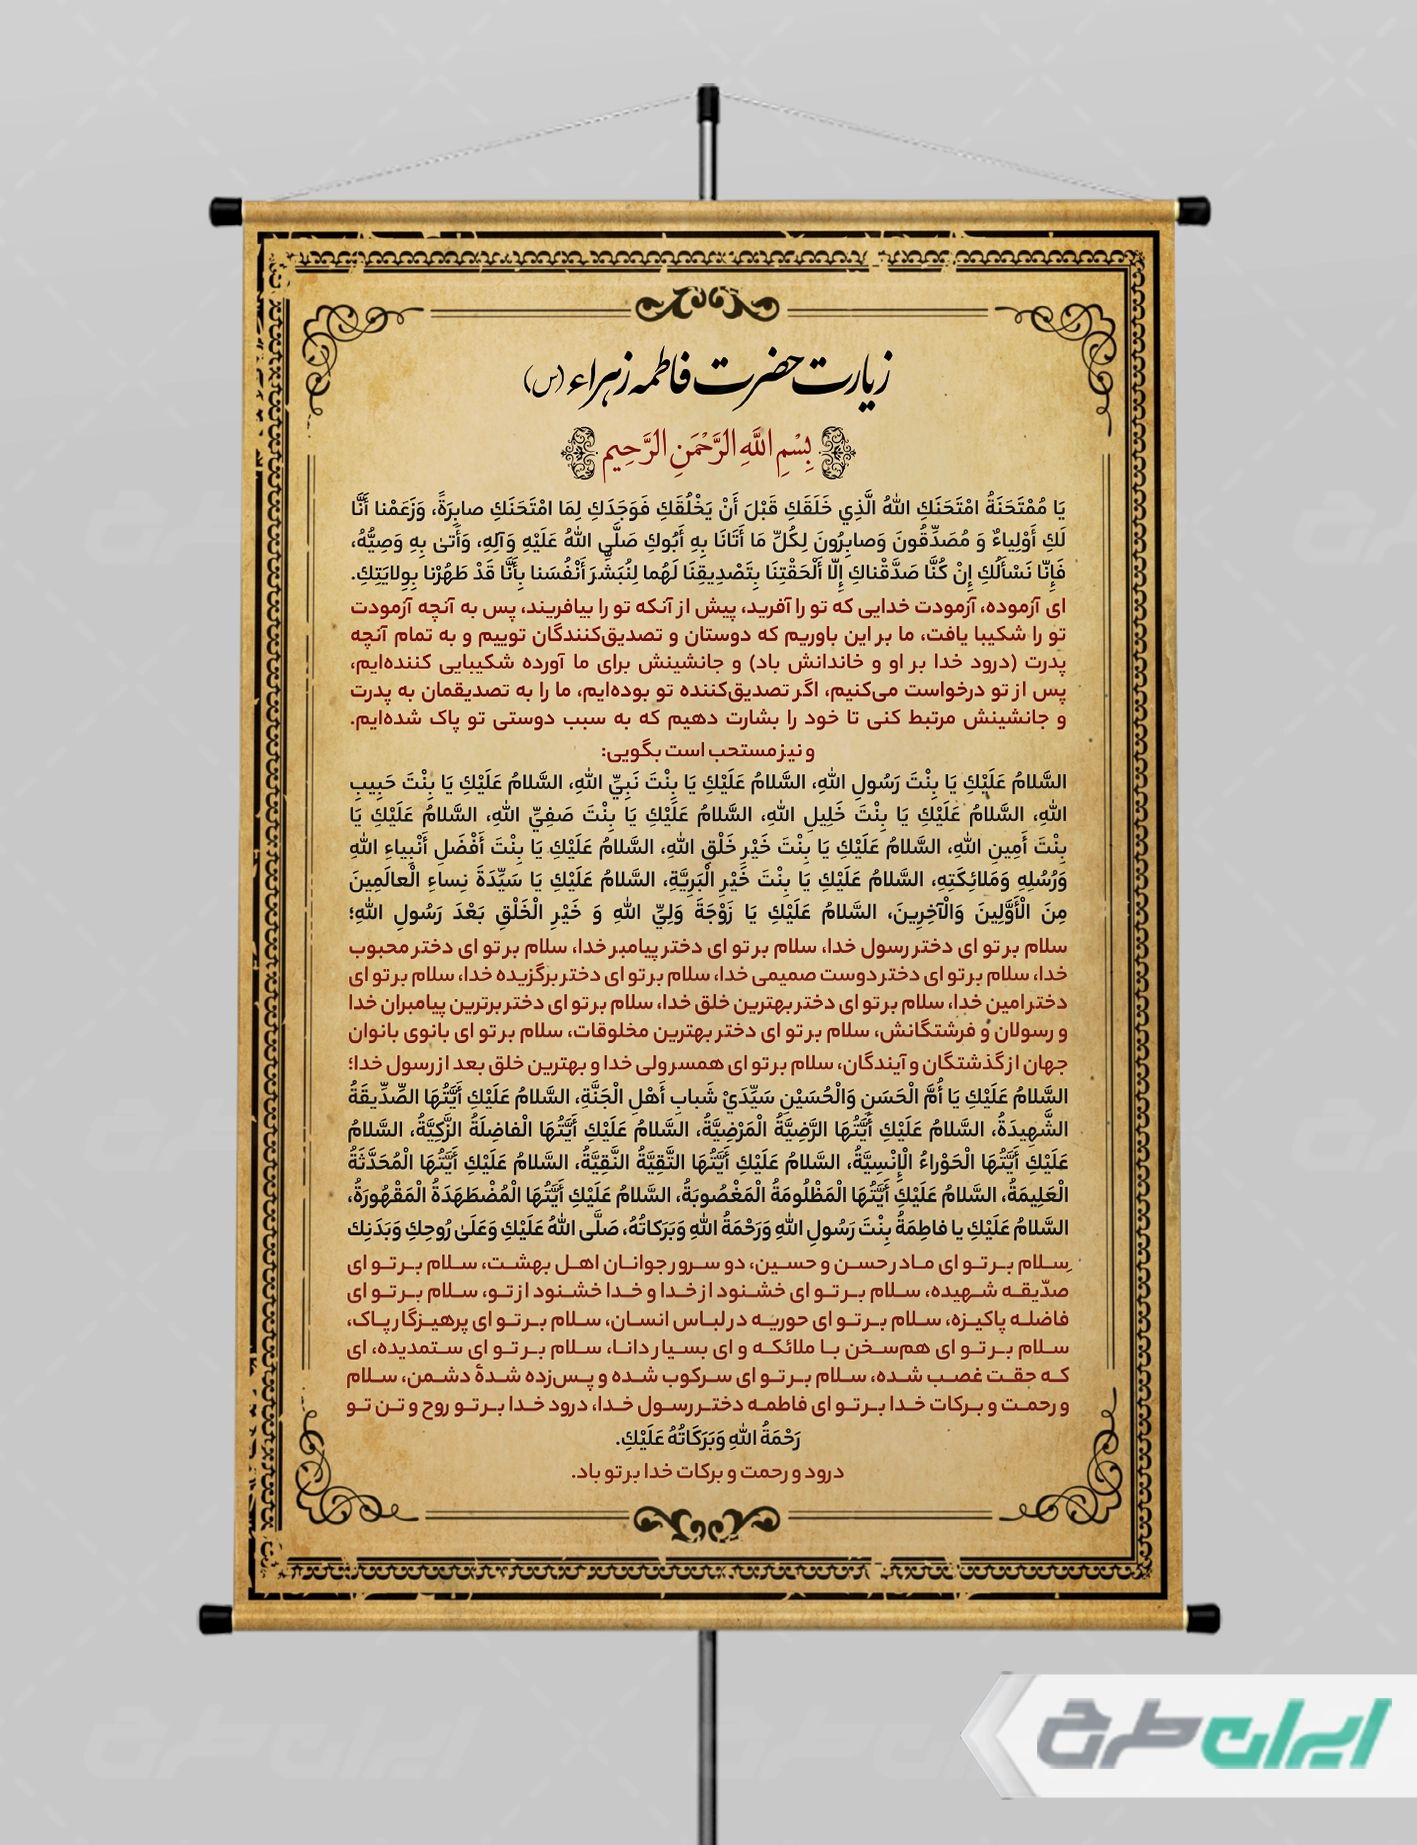 زیارت حضرت فاطمه زهراء (س)
بِسْمِ اللَّهِ الرَّحْمَنِ الرَّحِیمِ
يَا مُمْتَحَنَةُ امْتَحَنَكِ اللهُ الَّذِي خَلَقَكِ قَبْلَ أَنْ يَخْلُقَكِ فَوَجَدَكِ لِمَا امْتَحَنَكِ صابِرَةً، وَزَعَمْنا أَنَّا
لَكِ أَوْلِياءُ وَ مُصَدِّقُونَ وَصابِرُونَ لِكُلِّ مَا أَتَانَا بِهِ أَبُوكِ صَلَّى اللهُ عَلَيْهِ وَآلِهِ، وَأَتىٰ بِهِ وَصِيُّهُ،
فَإِنّا نَسْأَلُكِ إِنْ كُنَّا صَدَّقْناكِ إِلّا أَلْحَقْتِنَا بِتَصْدِيقِنَا لَهُما لِنُبَشِّرَ أَنْفُسَنا بِأَنَّا قَدْ طَهُرْنا بِوِلايَتِكِ.
ای آزموده، آزمودت خدایی که تو را آفرید، پیش از آنکه تو را بیافریند، پس به آنچه آزمودت
تو را شکیبا یافت، ما بر این باوریم که دوستان و تصدیق‌کنندگان توییم و به تمام آنچه
پدرت (درود خدا بر او و خاندانش باد) و جانشینش برای ما آورده شکیبایی کننده‌ایم،
پس از تو درخواست می‌کنیم، اگر تصدیق‌کننده تو بوده‌ایم، ما را به تصدیقمان به پدرت
و جانشینش مرتبط کنی تا خود را بشارت دهیم که به سبب دوستی تو پاک شده‌ایم.
و نیز مستحب است بگویی:
السَّلامُ عَلَيْكِ يَا بِنْتَ رَسُولِ اللهِ، السَّلامُ عَلَيْكِ يَا بِنْتَ نَبِيِّ اللهِ، السَّلامُ عَلَيْكِ يَا بِنْتَ حَبِيبِ
اللهِ، السَّلامُ عَلَيْكِ يَا بِنْتَ خَلِيلِ اللهِ، السَّلامُ عَلَيْكِ يَا بِنْتَ صَفِيِّ اللهِ، السَّلامُ عَلَيْكِ يَا
بِنْتَ أَمِينِ اللهِ، السَّلامُ عَلَيْكِ يَا بِنْتَ خَيْرِ خَلْقِ اللهِ، السَّلامُ عَلَيْكِ يَا بِنْتَ أَفْضَلِ أَنْبِياءِ اللهِ
وَرُسُلِهِ وَمَلائِكَتِهِ، السَّلامُ عَلَيْكِ يَا بِنْتَ خَيْرِ الْبَرِيَّةِ، السَّلامُ عَلَيْكِ يَا سَيِّدَةَ نِساءِ الْعالَمِينَ
مِنَ الْأَوَّلِينَ وَالْآخِرِينَ، السَّلامُ عَلَيْكِ يَا زَوْجَةَ وَلِيِّ اللهِ وَ خَيْرِ الْخَلْقِ بَعْدَ رَسُولِ اللهِ؛
سلام بر تو ای دختر رسول خدا، سلام بر تو ای دختر پیامبر خدا، سلام بر تو ای دختر محبوب
خدا، سلام بر تو ای دختر دوست صمیمی خدا، سلام بر تو ای دختر برگزیده خدا، سلام بر تو ای
دختر امین خدا، سلام بر تو ای دختر بهترین خلق خدا، سلام بر تو ای دختر برترین پیامبران خدا
و رسولان و فرشتگانش، سلام بر تو ای دختر بهترین مخلوقات، سلام بر تو ای بانوی بانوان
جهان از گذشتگان و آیندگان، سلام بر تو ای همسر ولی خدا و بهترین خلق بعد از رسول خدا؛
السَّلامُ عَلَيْكِ يَا أُمَّ الْحَسَنِ وَالْحُسَيْنِ سَيِّدَيْ شَبابِ أَهْلِ الْجَنَّةِ، السَّلامُ عَلَيْكِ أَيَّتُهَا الصِّدِّيقَةُ
الشَّهِيدَةُ، السَّلامُ عَلَيْكِ أَيَّتُهَا الرَّضِيَّةُ الْمَرْضِيَّةُ، السَّلامُ عَلَيْكِ أَيَّتُهَا الْفاضِلَةُ الزَّكِيَّةُ، السَّلامُ
عَلَيْكِ أَيَّتُهَا الْحَوْراءُ الْإِنْسِيَّةُ، السَّلامُ عَلَيْكِ أَيَّتُهَا التَّقِيَّةُ النَّقِيَّةُ، السَّلامُ عَلَيْكِ أَيَّتُهَا الْمُحَدَّثَةُ
الْعَلِيمَةُ، السَّلامُ عَلَيْكِ أَيَّتُهَا الْمَظْلُومَةُ الْمَغْصُوبَةُ، السَّلامُ عَلَيْكِ أَيَّتُهَا الْمُضْطَهَدَةُ الْمَقْهُورَةُ،
السَّلامُ عَلَيْكِ يا فاطِمَةُ بِنْتَ رَسُولِ اللهِ وَرَحْمَةُ اللهِ وَبَرَكاتُهُ، صَلَّى اللهُ عَلَيْكِ وَعَلَىٰ رُوحِكِ وَبَدَنِك
سلام بر تو ای مادر حسن و حسین، دو سرور جوانان اهل بهشت، سلام بر تو ای
صدّیقه شهیده، سلام بر تو ای خشنود از خدا و خدا خشنود از تو، سلام بر تو ای
فاضله پاکیزه، سلام بر تو ای حوریه در لباس انسان، سلام بر تو ای پرهیزگار پاک،
سلام بر تو ای هم‌سخن با ملائکه و ای بسیار دانا، سلام بر تو ای ستمدیده، ای
که حقت غصب شده، سلام بر تو ای سرکوب شده و پس‌زده شدهٔ دشمن، سلام
و رحمت و برکات خدا بر تو ای فاطمه دختر رسول خدا، درود خدا بر تو روح و تن تو
رَحْمَةُ اللهِ وَبَرَكَاتُهُ عَلَيْكِ.
درود و رحمت و برکات خدا بر تو باد.
ایران طرح